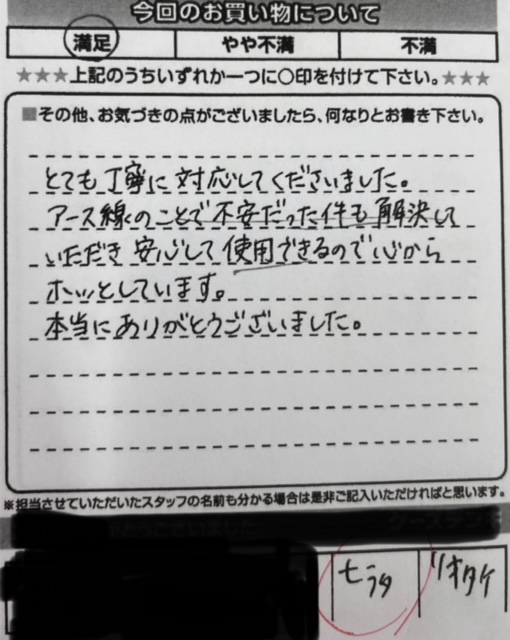 今回のお買い物について
満足 やや不満 不満
★★★上記のうちいずれか一つに○印を付けて下さい。★★★
■その他、お気づきの点がございましたら、何なりとお書き下さい。
とても丁寧に対応してくださいました。
アース線のことで不安だった件も解決して
いただき安心して使用できるので心から
ホッとしています。
本当にありがとうございました。
※担当させていただいたスタッフの名前も分かる場合は是非ご記入いただければと思います。
とうございました